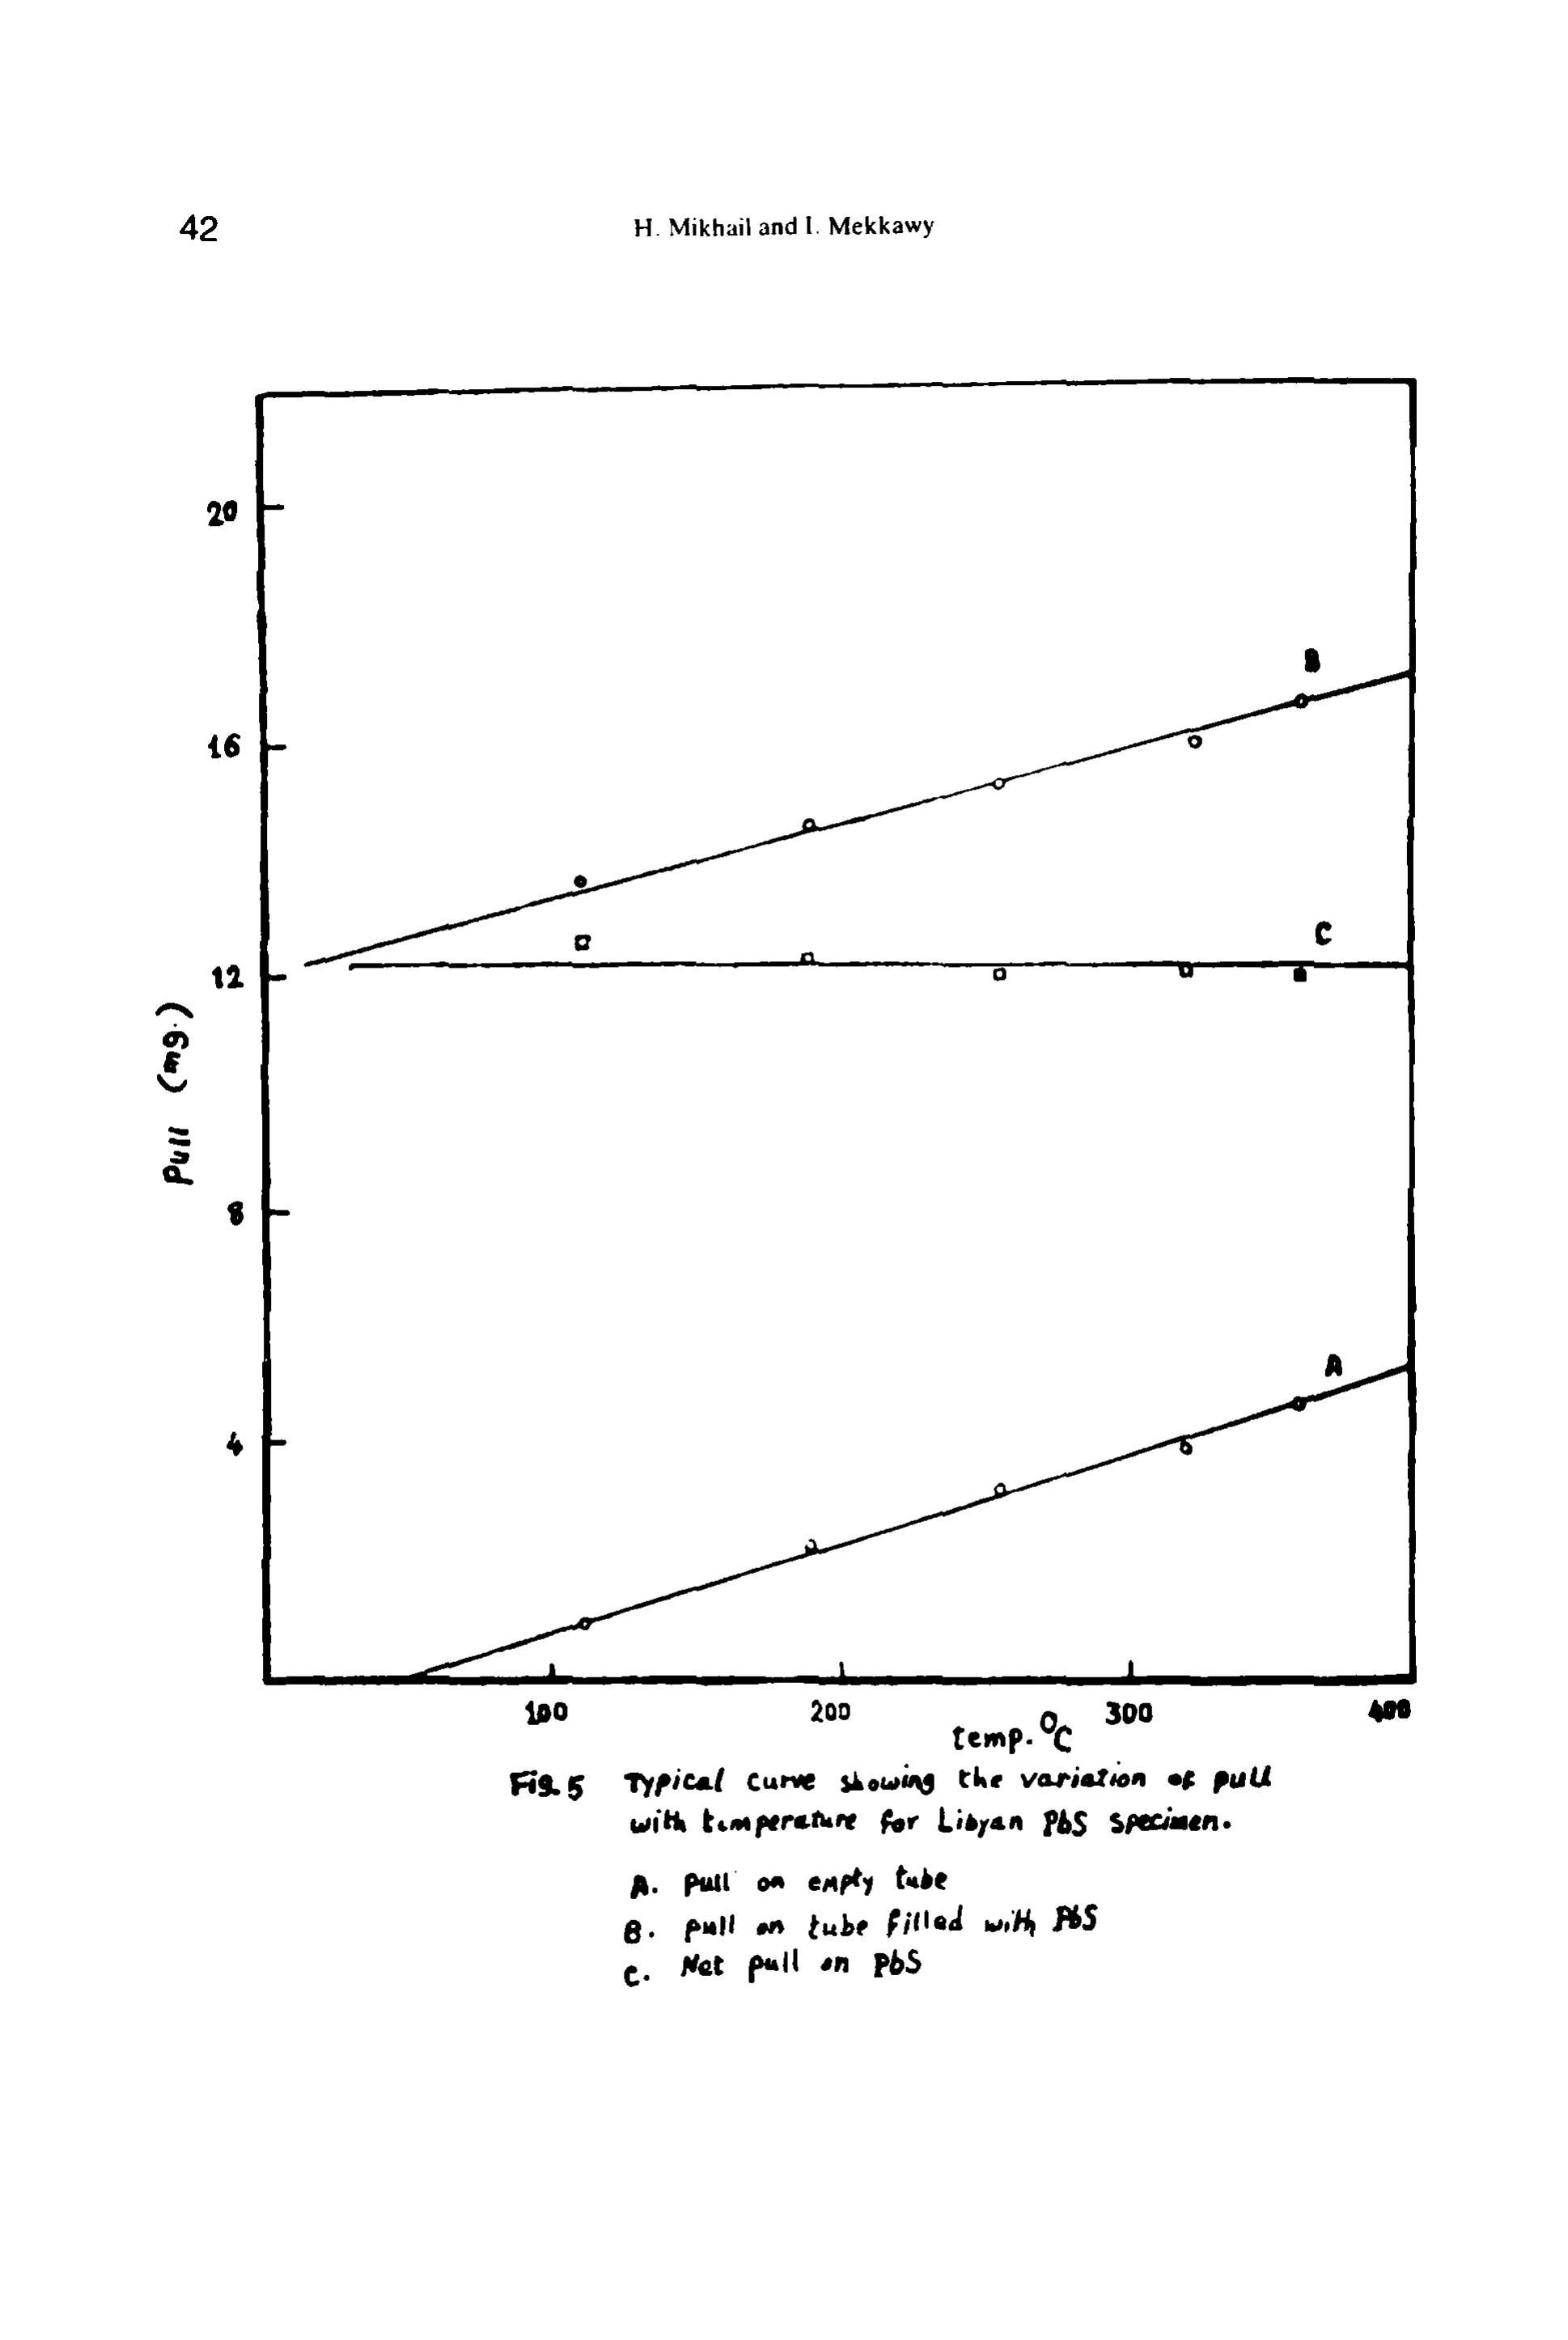 42
H. Mikhail and I. Mekkawy
20
16
12
8
4
Pull (mg.)
B
C
A
100
200
300
400
temp. °C
Fig. 5 Typical curve showing the variation of pull
with temperature for Libyan PbS specimen.
A. Pull on empty tube
B. pull on tube filled with PbS
C. Net pull on PbS